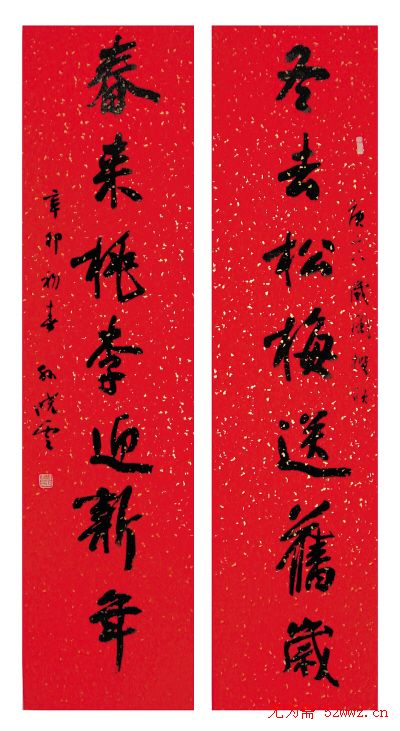 冬去松梅送舊歲
春来桃李迎新年
辛卯初春 孙晓云
无为斋 52wwz.cn